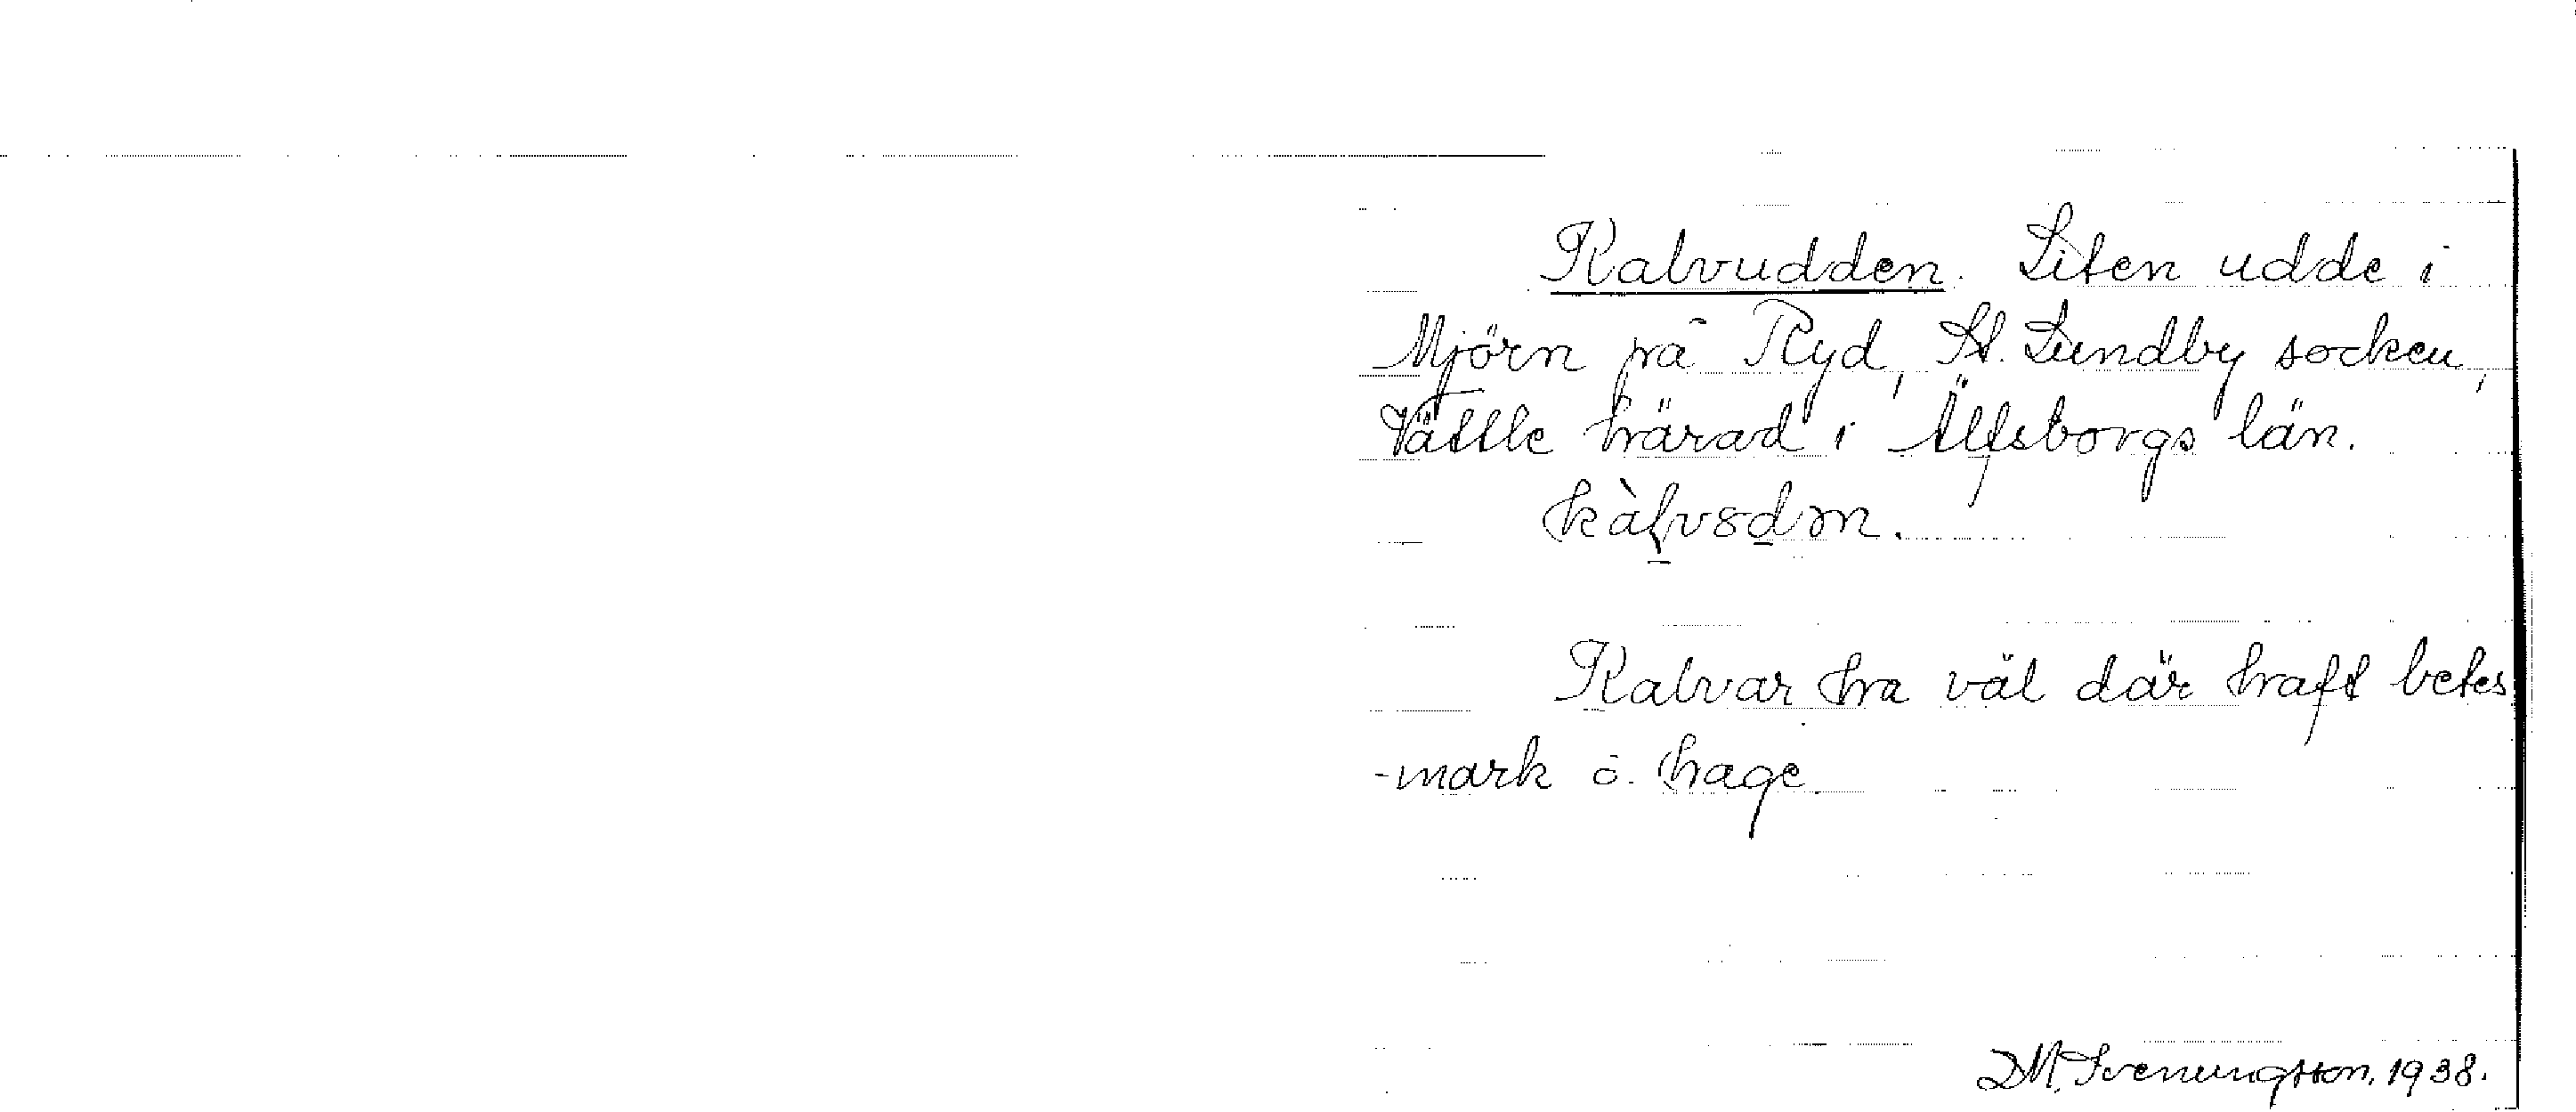 Kalvudden. Liten udde i
Mjörn på Ryd, St. Lundby socken,
Vättle härad i Älfsborgs län.
Kalvar ha väl där haft betes
-mark o. hage.
D M. Svenungsson. 1938.